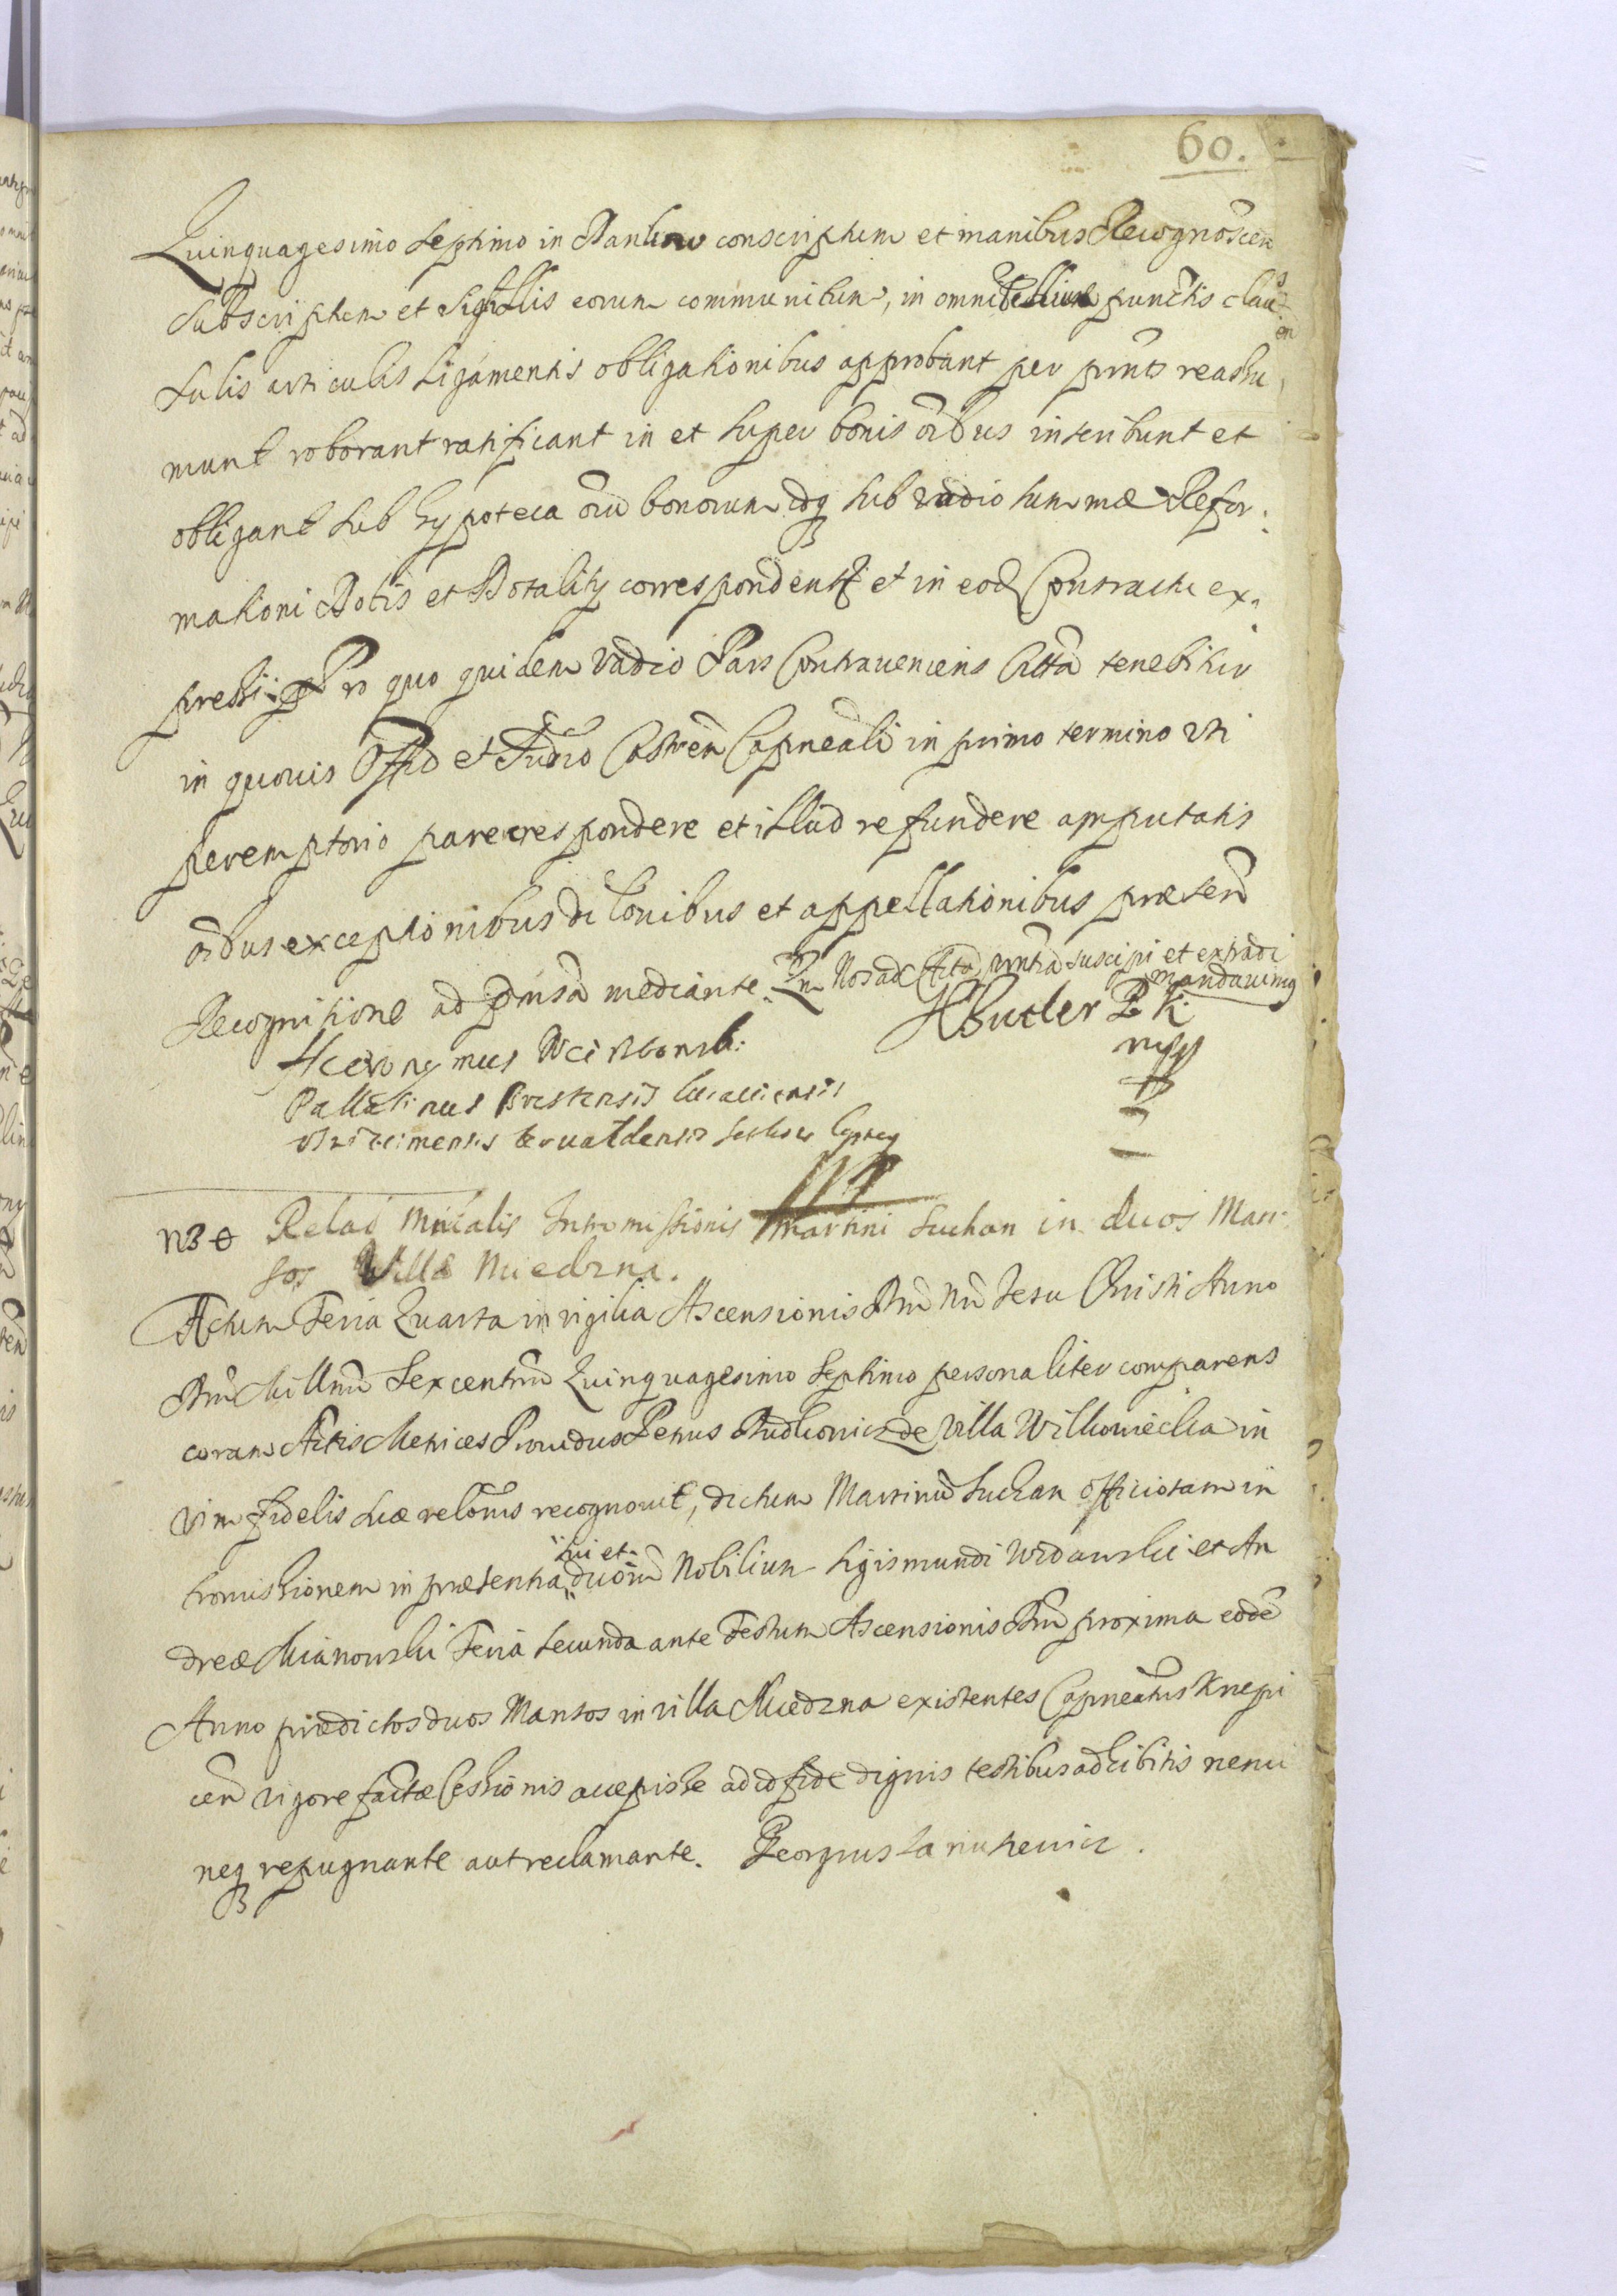 60.
Quinquagesimo Septimo in conscriptum et manibus Recognoscen
Subscriptum et Sigillis eorum communitum, in omnibus punctis clau
sulis articulis ligamentis obligationibus approbant per prnts reassu
munt roborant ratificant in et super bonis oībus inscribunt et
obligant sub hypoteca oiū bonorum eōq sub vadio summæ Refor:
mationi Dotis et Dotalitÿ correspondenti et in eod Contractu ex
pressi: Pro quo quidem vadio Pars Contraveniens Citta tenebitur
in quovis Offīo et Judīo Castren Capneali in primo termino uti
peremptorio parere respondere et illud refundere amputatis
oībus exceptionibus dilōnibus et appellationibus præsen
Recognitione ad prmsa mediante. Nos ad Acta prntia suscipi et extradi
mandavimus
HButler P K
mpp
Hieronymus
Pallatinus
N3 Relaō Mntalis Intromissionis Martini Suchan in duos Man
sos Villæ Miedzna.
Actum Feria Quarta in vigilia Ascensionis Dnī Nrī Jesu Christi Anno
Dnī Millmō Sexcentmō Quinquagesimo Septimo personaliter comparens
coram Actis Metrices Providus Petrus de Villa Wilkowiecka in
vim fidelis suæ relōnis recognovit, dictum Martinū Suchan officiosam in
sui et
tromissionem in præsentia duorū Nobilium Sigismundi Widawski et An
dreæ Mianowski Feria Secunda ante Festum Ascensionis Dnī proxima eodē
Anno prædictos duos Mansos in villa Miedzna existentes Capneatus Krzepi
cen vigore factæ Cessionis accepisse ad id fide dignis testibus adhibitis nemi
neq repugnante aut reclamante. Georgius